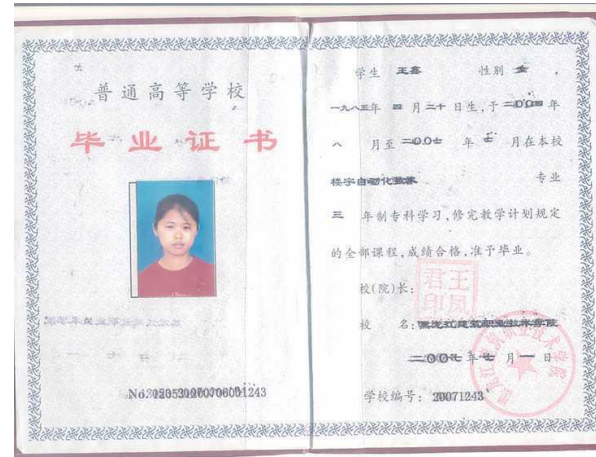 普通高等学校
毕业证书
No.
学生 王鑫 性别 女 ,
一九八五年 四 月 二十 日生,于 二〇〇四 年
八 月至 二〇〇七 年 七 月在本校
楼宇自动化 专业
三 年制专科学习,修完教学计划规定
的全部课程,成绩合格,准予毕业。
校(院)长:
校 名: 黑龙江建筑职业技术学院
二〇〇七 年 七 月 一 日
学校编号: 20071243